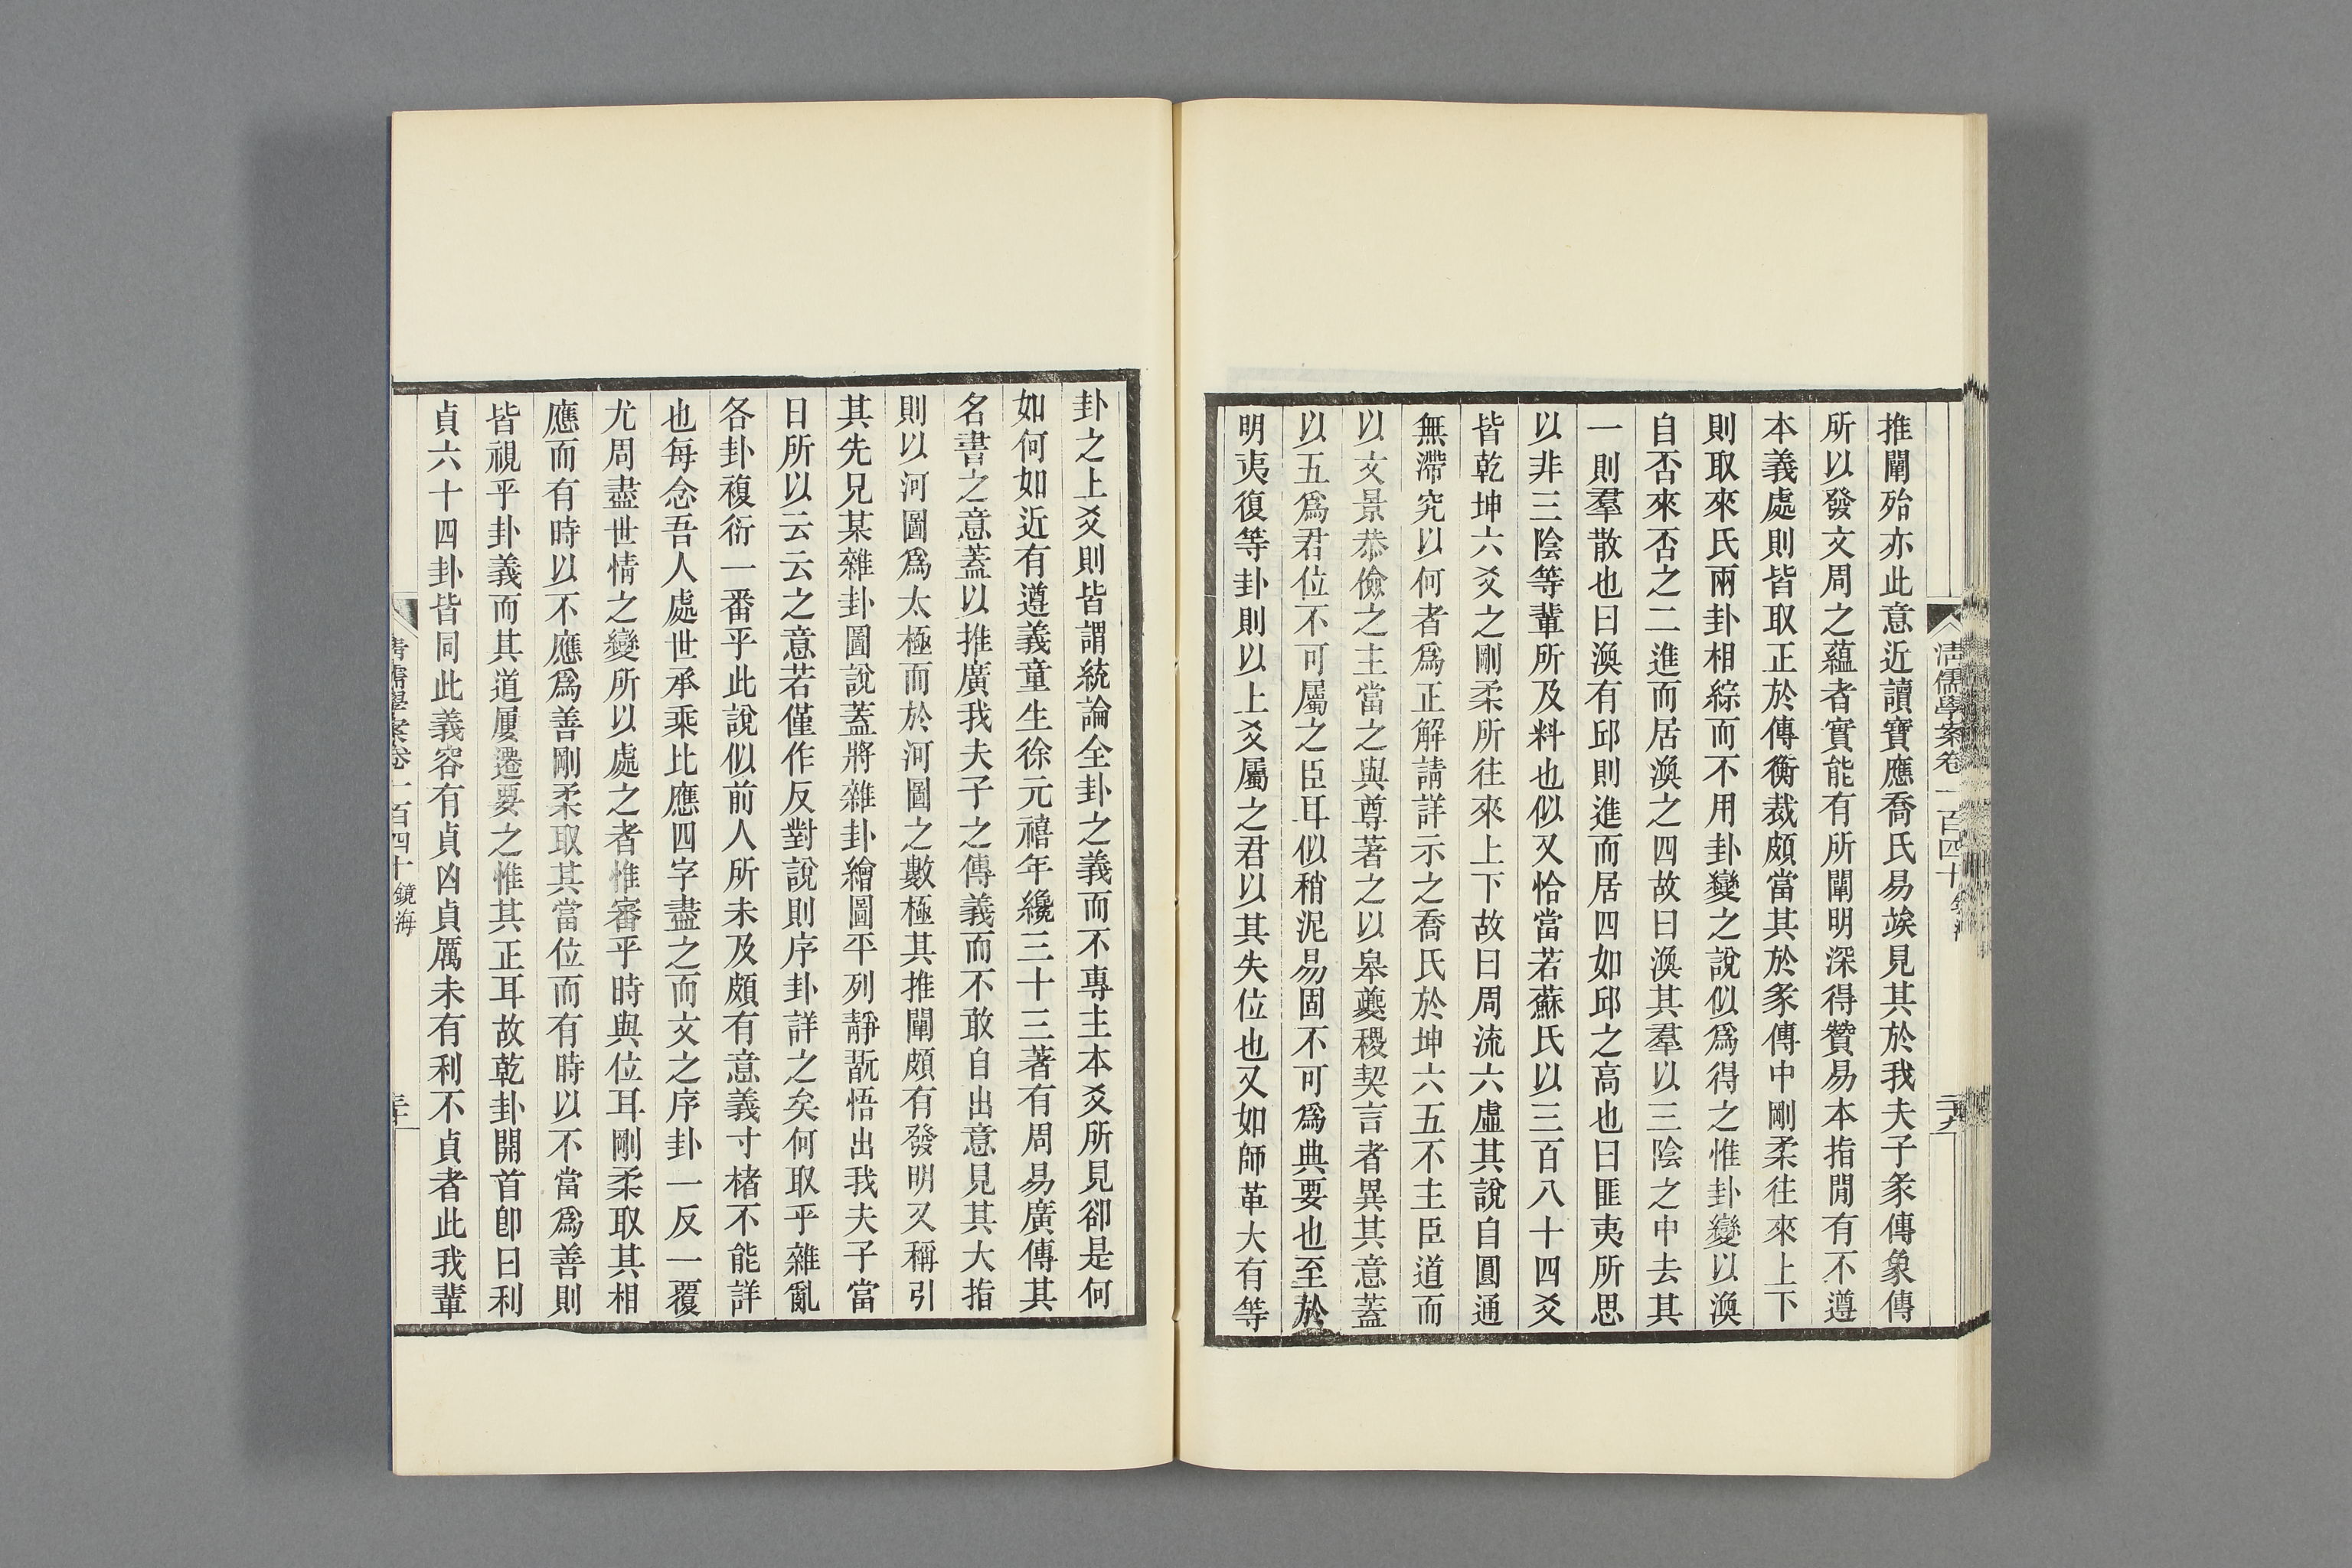 清儒學案卷一百四十
推闡殆亦此意近讀寶應喬氏易竢見其於我夫子彖傳象傳
所以發文周之蘊者實能有所闡明深得贊易本指閒有不遵
本義處則皆取正於傳衡裁頗當其於彖傳中剛柔往來上下
則取來氏兩卦相綜而不用卦變之說似爲得之惟卦變以渙
自否來否之二進而居渙之四故曰渙其羣以三陰之中去其
一則羣散也曰渙有邱則進而居四如邱之高也曰匪夷所思
以非三陰等輩所及料也似又恰當若蘇氏以三百八十四爻
皆乾坤六爻之剛柔所往來上下故曰周流六虛其說自圓通
無滯究以何者爲正解請詳示之喬氏於坤六五不主臣道而
以文景恭儉之主當之與尊著之以皋夔稷契言者異其意蓋
以五爲君位不可屬之臣耳似稍泥易固不可爲典要也至於
明夷復等卦則以上爻屬之君以其失位也又如師革大有等
卦之上爻則皆謂統論全卦之義而不專主本爻所見卻是何
如何如近有遵義童生徐元禧年纔三十三著有周易廣傳其
名書之意蓋以推廣我夫子之傳義而不敢自出意見其大指
則以河圖爲太極而於河圖之數極其推闡頗有發明又稱引
其先兄某雜卦圖說蓋將雜卦繪圖平列靜翫悟出我夫子當
日所以云云之意若僅作反對說則序卦詳之矣何取乎雜亂
各卦複衍一番乎此說似前人所未及頗有意義寸楮不能詳
也每念吾人處世承乘比應四字盡之而文之序卦一反一覆
尤周盡世情之變所以處之者惟審乎時與位耳剛柔取其相
應而有時以不應爲善剛柔取其當位而有時以不當爲善則
皆視乎卦義而其道屢遷要之惟其正耳故乾卦開首卽曰利
貞六十四卦皆同此義容有貞凶貞厲未有利不貞者此我輩
清儒學案卷一百四十 鏡海